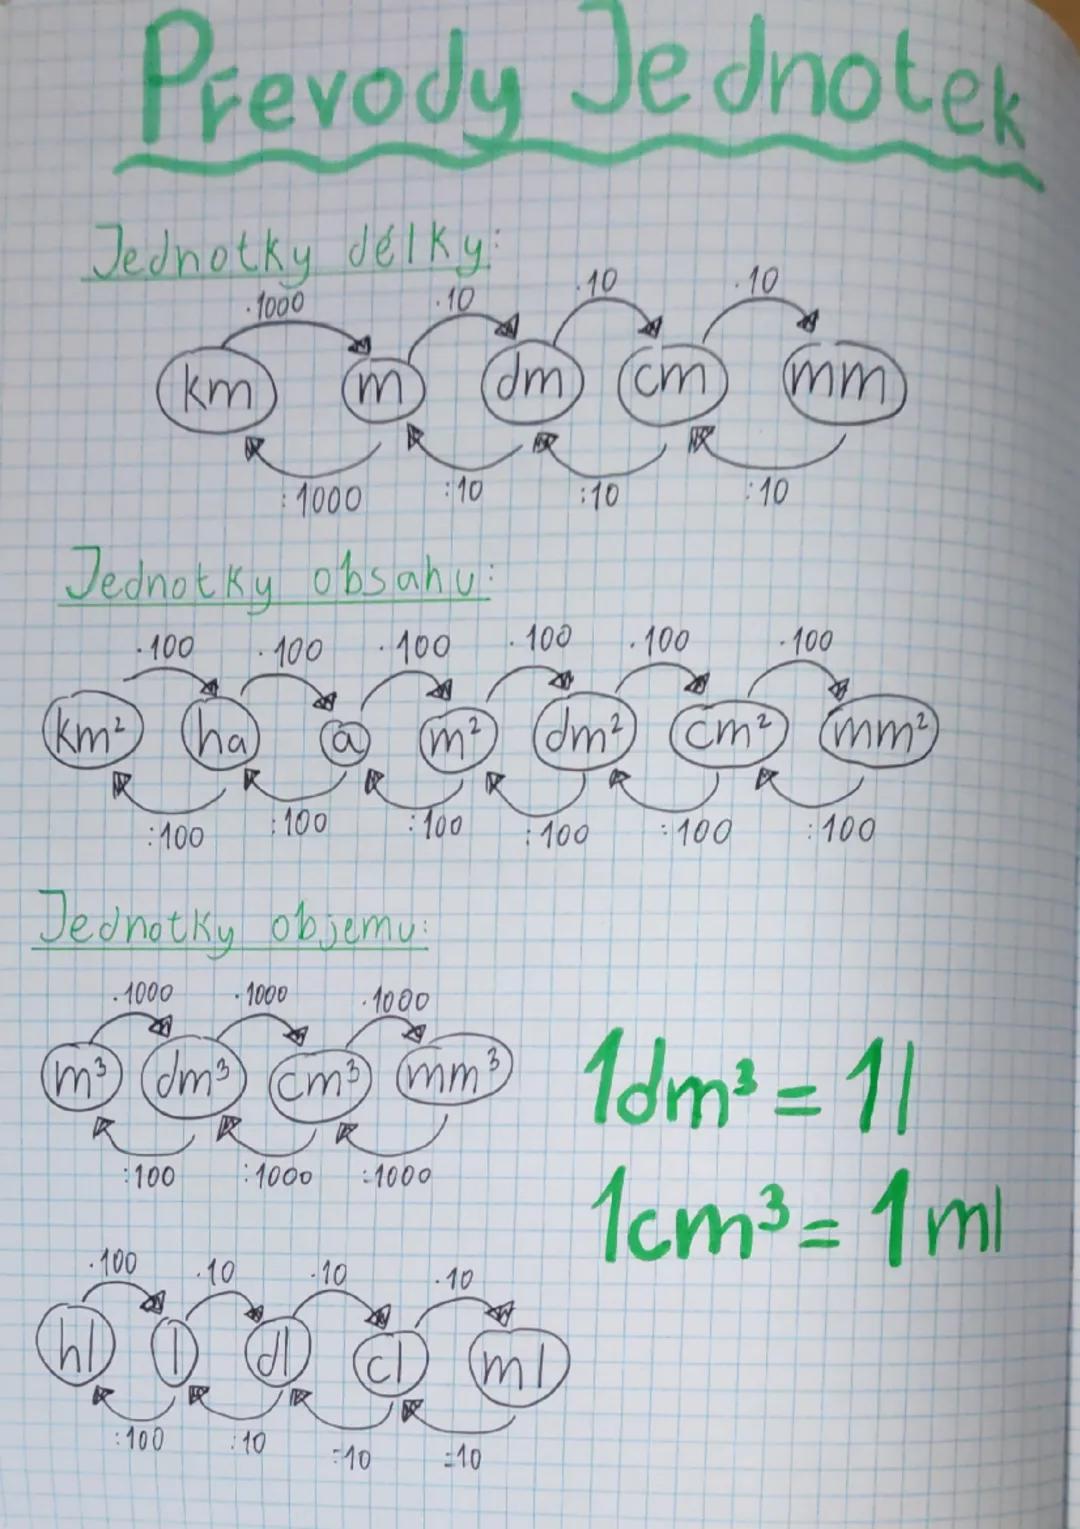 Převody Jednotek
Jednotky délky:
.1000 .10 .10 .10
km m dm cm mm
:1000 :10 :10 :10
Jednotky obsahu:
.100 .100 .100 .100 .100 .100
km² ha a m² dm² cm² mm²
:100 :100 :100 :100 :100 :100
Jednotky objemu:
.1000 .1000 .1000
m³ dm³ cm³ mm³
:100 :1000 :1000
1dm³ = 1l
1cm³ = 1ml
.100 .10 .10 .10
hl l dl cl ml
:100 :10 :10 :10